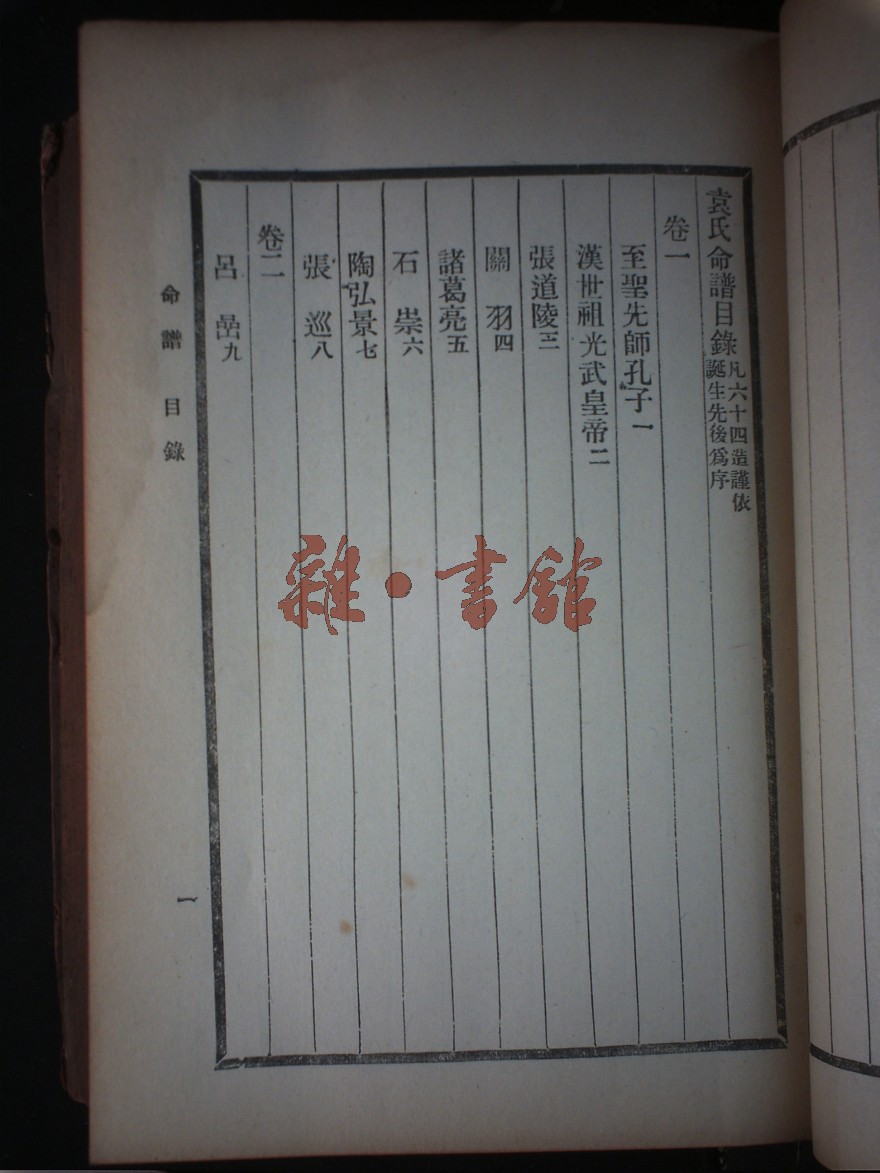 袁氏命譜目錄 凡六十四造謹依
誕生先後爲序
卷一
至聖先師孔子一
漢世祖光武皇帝二
張道陵三
關羽四
諸葛亮五
石崇六
陶弘景七
張巡八
卷二
呂嵒九
命譜 目錄
一
雜·書館